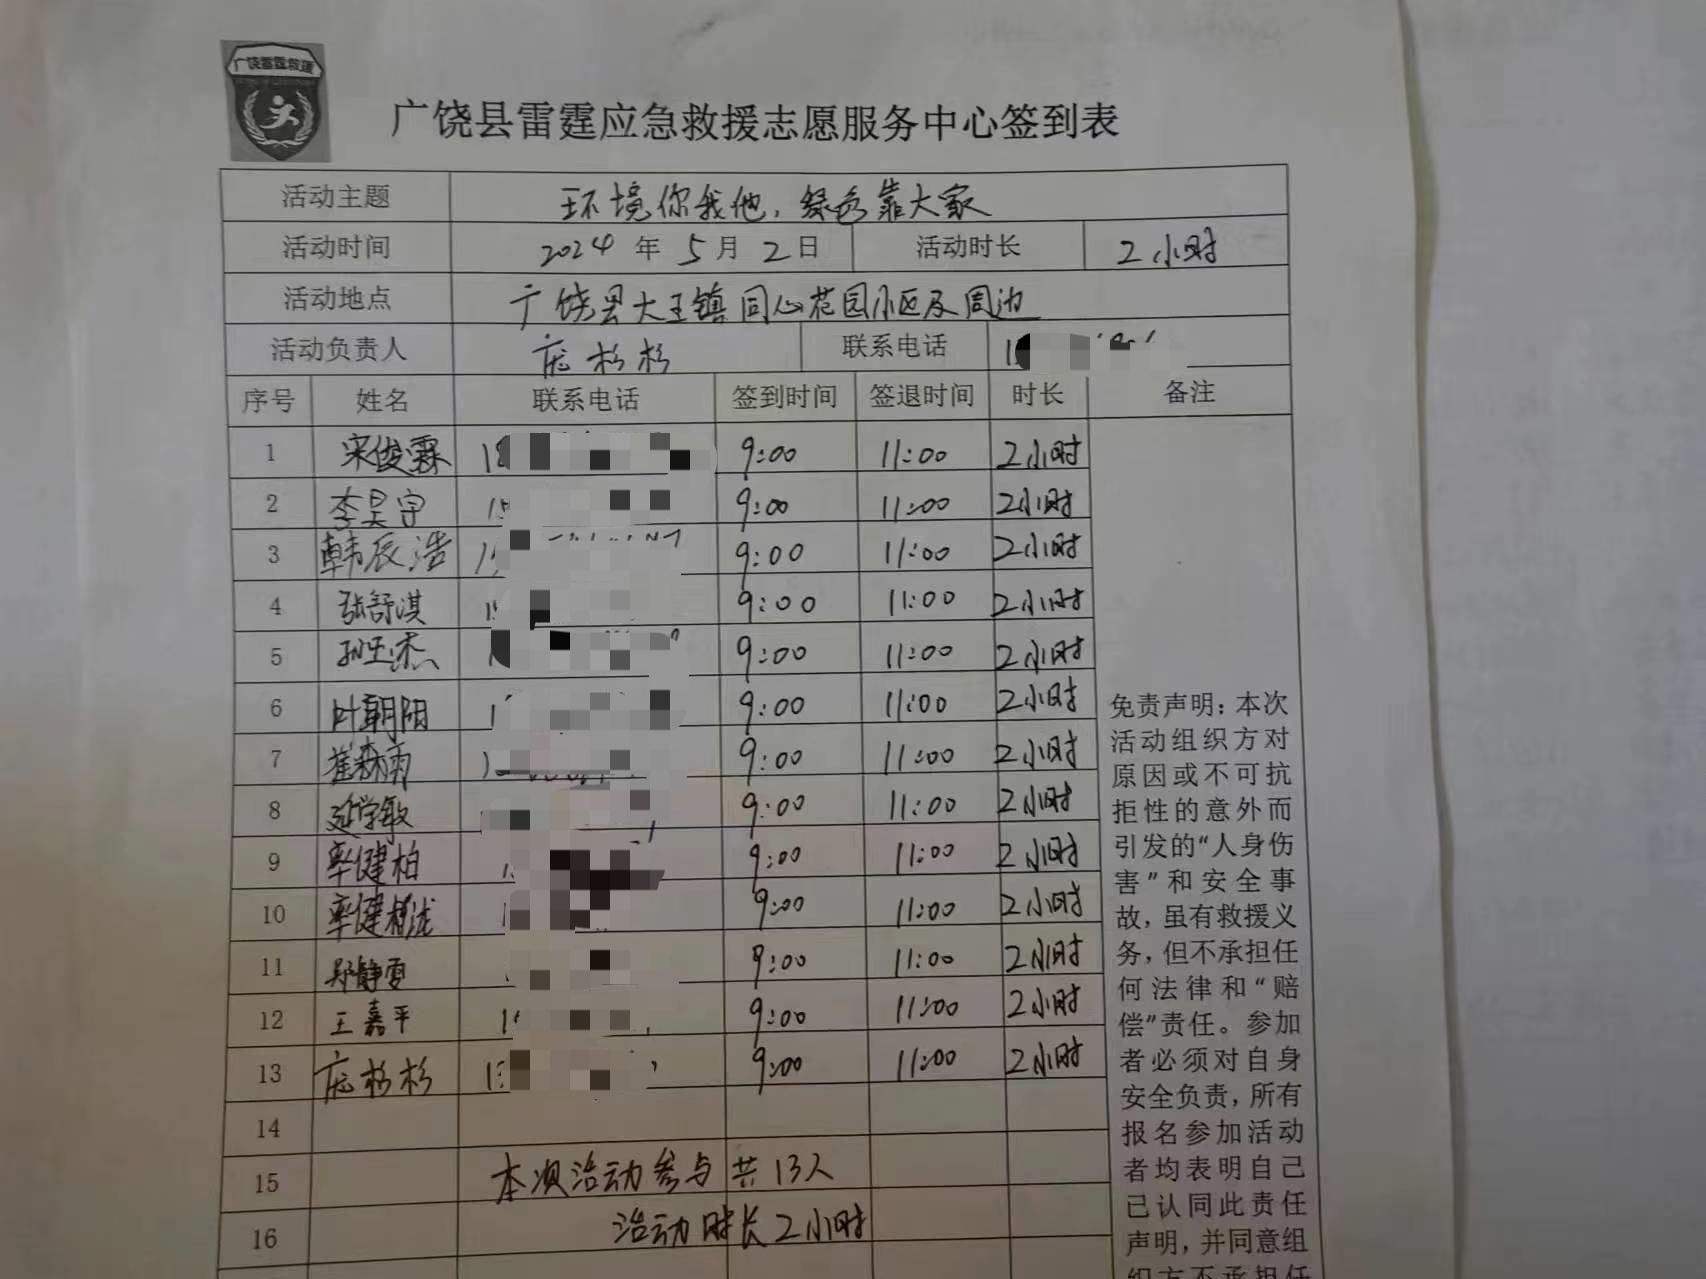 广饶雷霆救援
广饶县雷霆应急救援志愿服务中心签到表
活动主题 环境你我他，绿色靠大家
活动时间 2024年5月2日 活动时长 2小时
活动地点 广饶县大王镇同心花园小区及周边
活动负责人 庞杉杉 联系电话 1
序号 姓名 联系电话 签到时间 签退时间 时长 备注
1 宋俊霖 18 9:00 11:00 2小时
2 李昊宇 15 9:00 11:00 2小时
3 韩辰浩 15 9:00 11:00 2小时
4 张舒淇 9:00 11:00 2小时
5 孙玉杰 1 9:00 11:00 2小时
6 叶朝阳 1 9:00 11:00 2小时
7 崔森雨 1 9:00 11:00 2小时
8 延学敏 9:00 11:00 2小时
9 率健柏 1 9:00 11:00 2小时
10 率健 1 9:00 11:00 2小时
11 郑静雯 9:00 11:00 2小时
12 王嘉平 1 9:00 11:00 2小时
13 庞杉杉 1 9:00 11:00 2小时
14
15 本次活动参与共13人
16 活动时长2小时
免责声明：本次
活动组织方对
原因或不可抗
拒性的意外而
引发的“人身伤
害”和安全事
故，虽有救援义
务，但不承担任
何法律和“赔
偿”责任。参加
者必须对自身
安全负责，所有
报名参加活动
者均表明自己
已认同此责任
声明，并同意组
织方不承担任